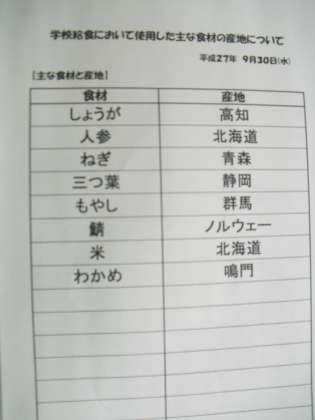 学校給食において使用した主な食材の産地について
平成27年 9月30日(水)
[主な食材と産地]
食材 産地
しょうが 高知
人参 北海道
ねぎ 青森
三つ葉 静岡
もやし 群馬
鯖 ノルウェー
米 北海道
わかめ 鳴門